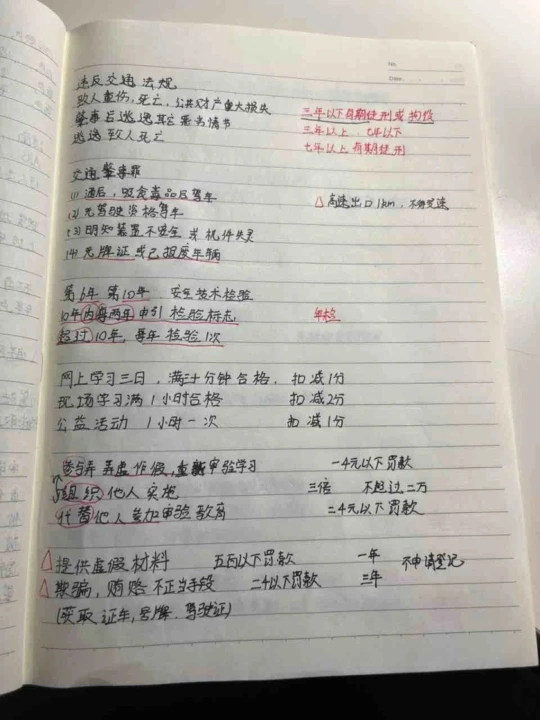 No.
Date
违反交通法规
致人重伤,死亡,公共财产重大损失 三年以下有期徒刑或拘役
肇事后逃逸其它恶劣情节 三年以上 七年以下
逃逸致人死亡 七年以上有期徒刑
交通肇事罪
(1) 酒后,吸食毒品后驾车 △高速出口1km,不够变速
(2) 无驾驶资格驾车
(3) 明知装置不安全或机件失灵
(4) 无牌证或已报废车辆
第6年 第10年 安全技术检验
10年内每两年申引检验标志 年检
超过10年,每年检验1次
网上学习三日,满三十分钟合格, 扣减1分
现场学习满1小时合格 扣减2分
公益活动 1小时一次 扣减1分
参与弄虚作假,重新审验学习 一千元以下罚款
组织他人实施 三倍 不超过二万
代替他人参加审验教育 二千元以下罚款
△提供虚假材料 五百以下罚款 一年 不申请登记
△欺骗,贿赂不正当手段 二千以下罚款 三年
(获取证车,号牌.驾驶证)